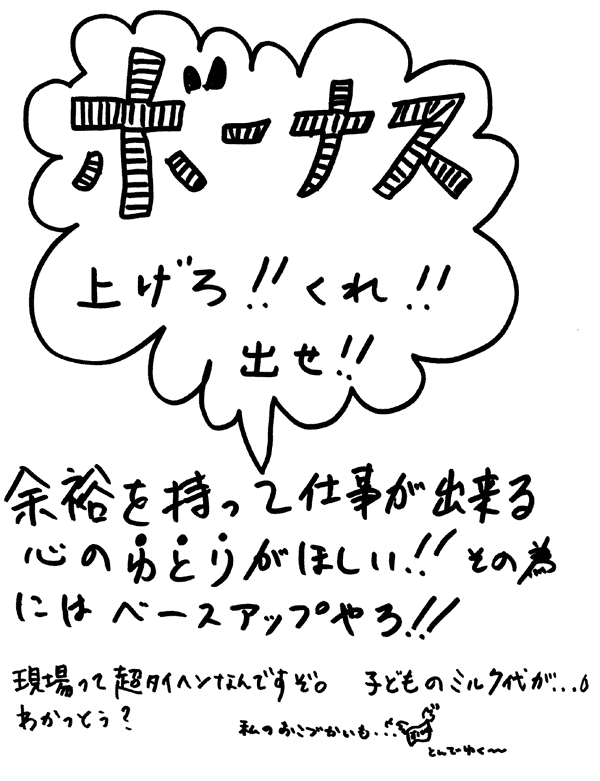 ボーナス
上げろ!!くれ!!
出せ!!
余裕を持って仕事が出来る
心のゆとりがほしい!!その為
にはベースアップやろ!!
現場って超タイヘンなんですぞ。 子どものミルク代が...。
わかっとう?
私のおこづかいも...
とんでゆく〜